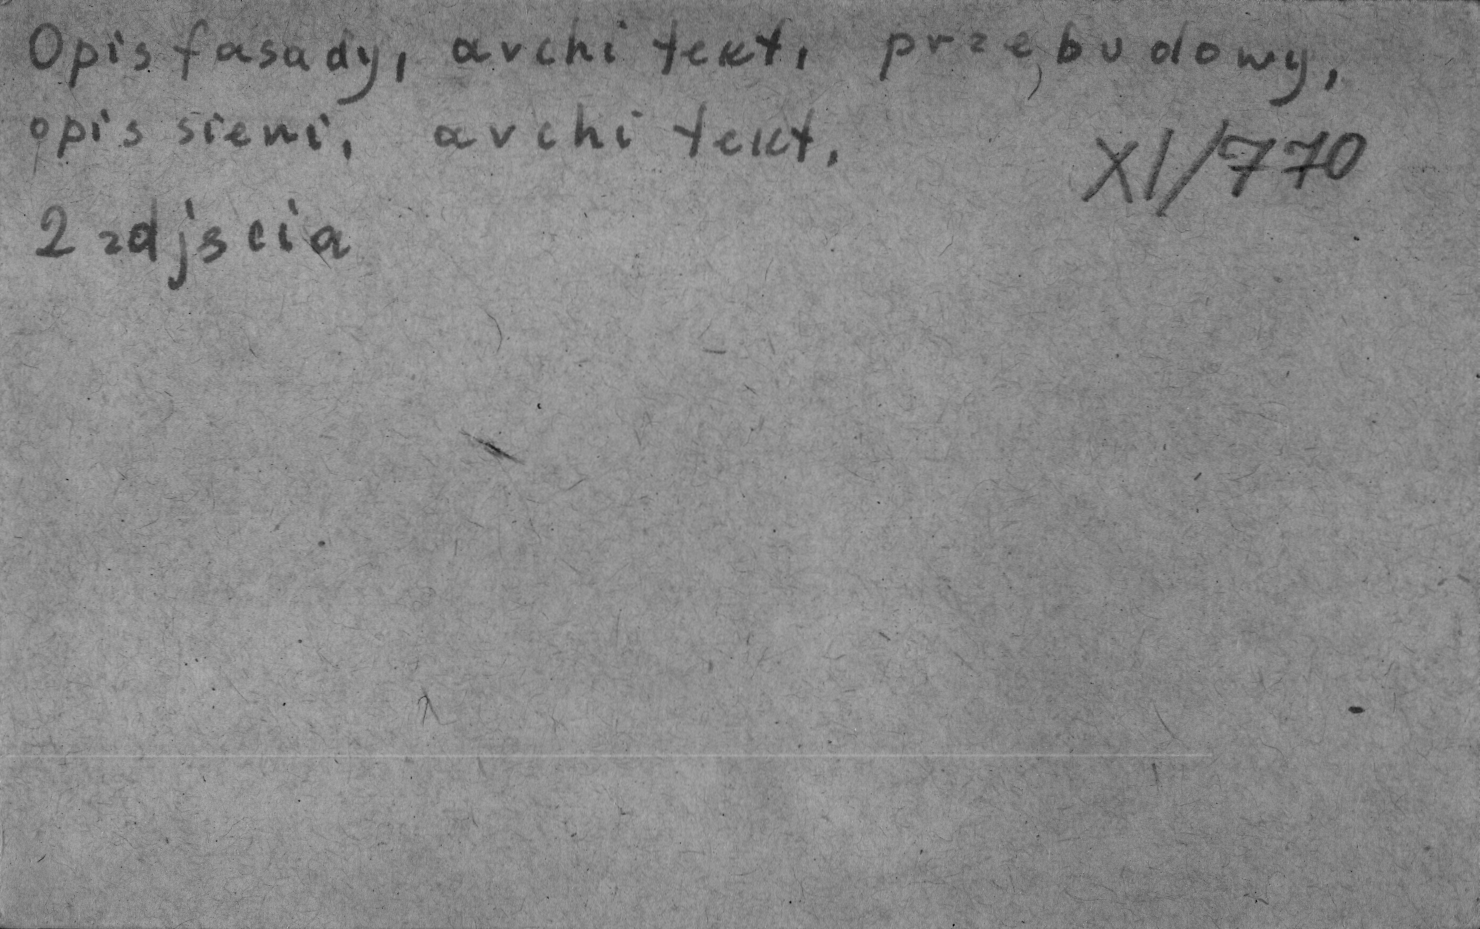 Opis fasady, architekt, przebudowy,
opis sieni, architekt.
XI/770
2 zdjscia